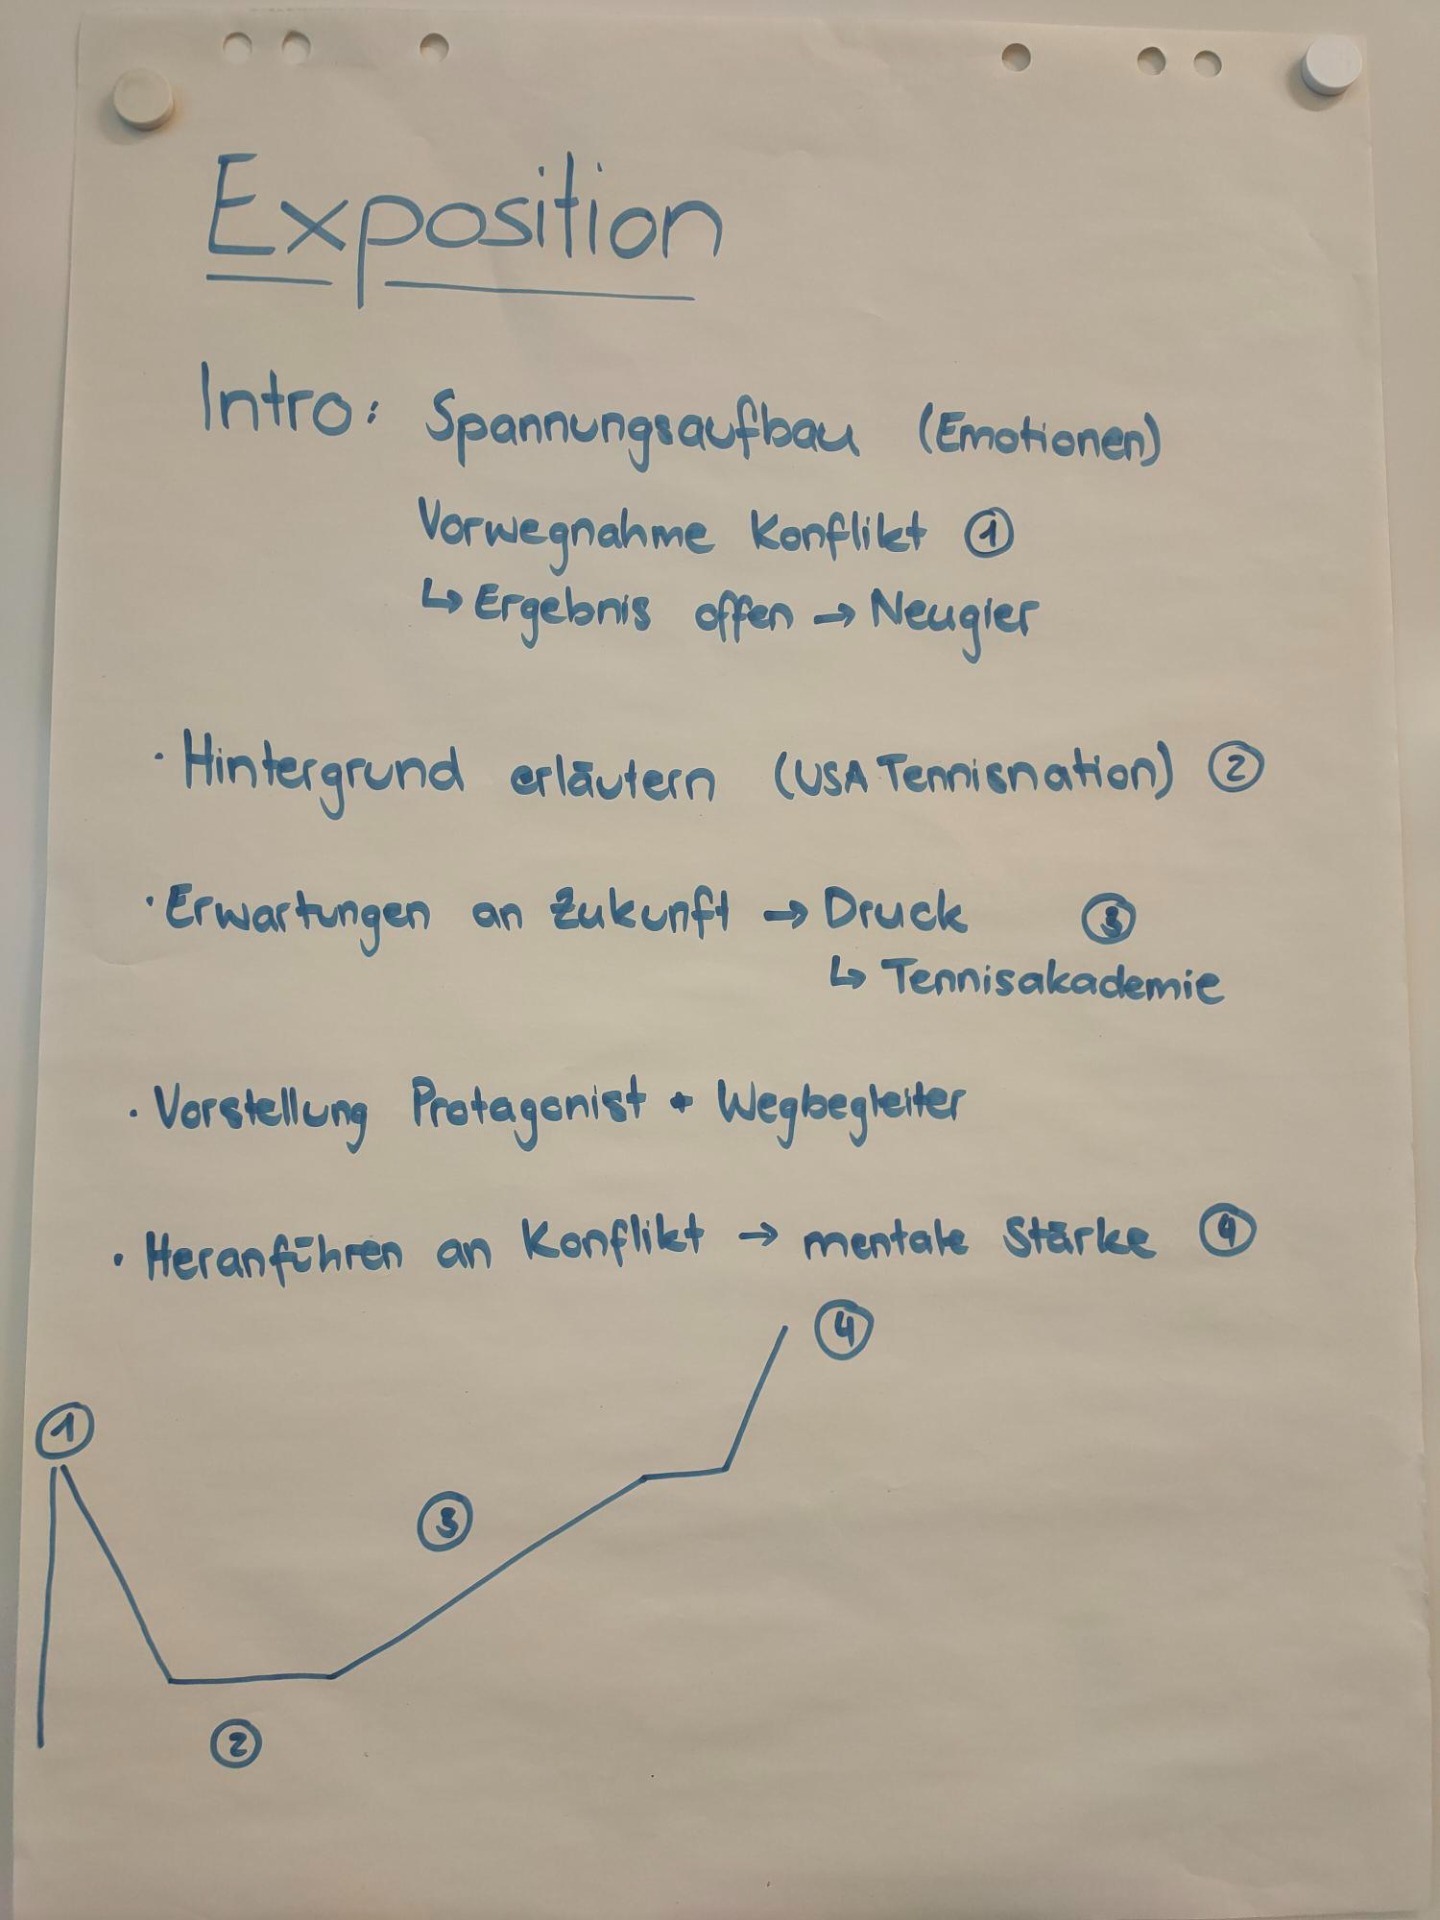 Exposition
Intro: Spannungsaufbau (Emotionen)
Vorwegnahme Konflikt ①
↳ Ergebnis offen → Neugier
· Hintergrund erläutern (USA Tennisnation) ②
· Erwartungen an Zukunft → Druck ③
↳ Tennisakademie
· Vorstellung Protagonist + Wegbegleiter
· Heranführen an Konflikt → mentale Stärke ④
④
①
③
②